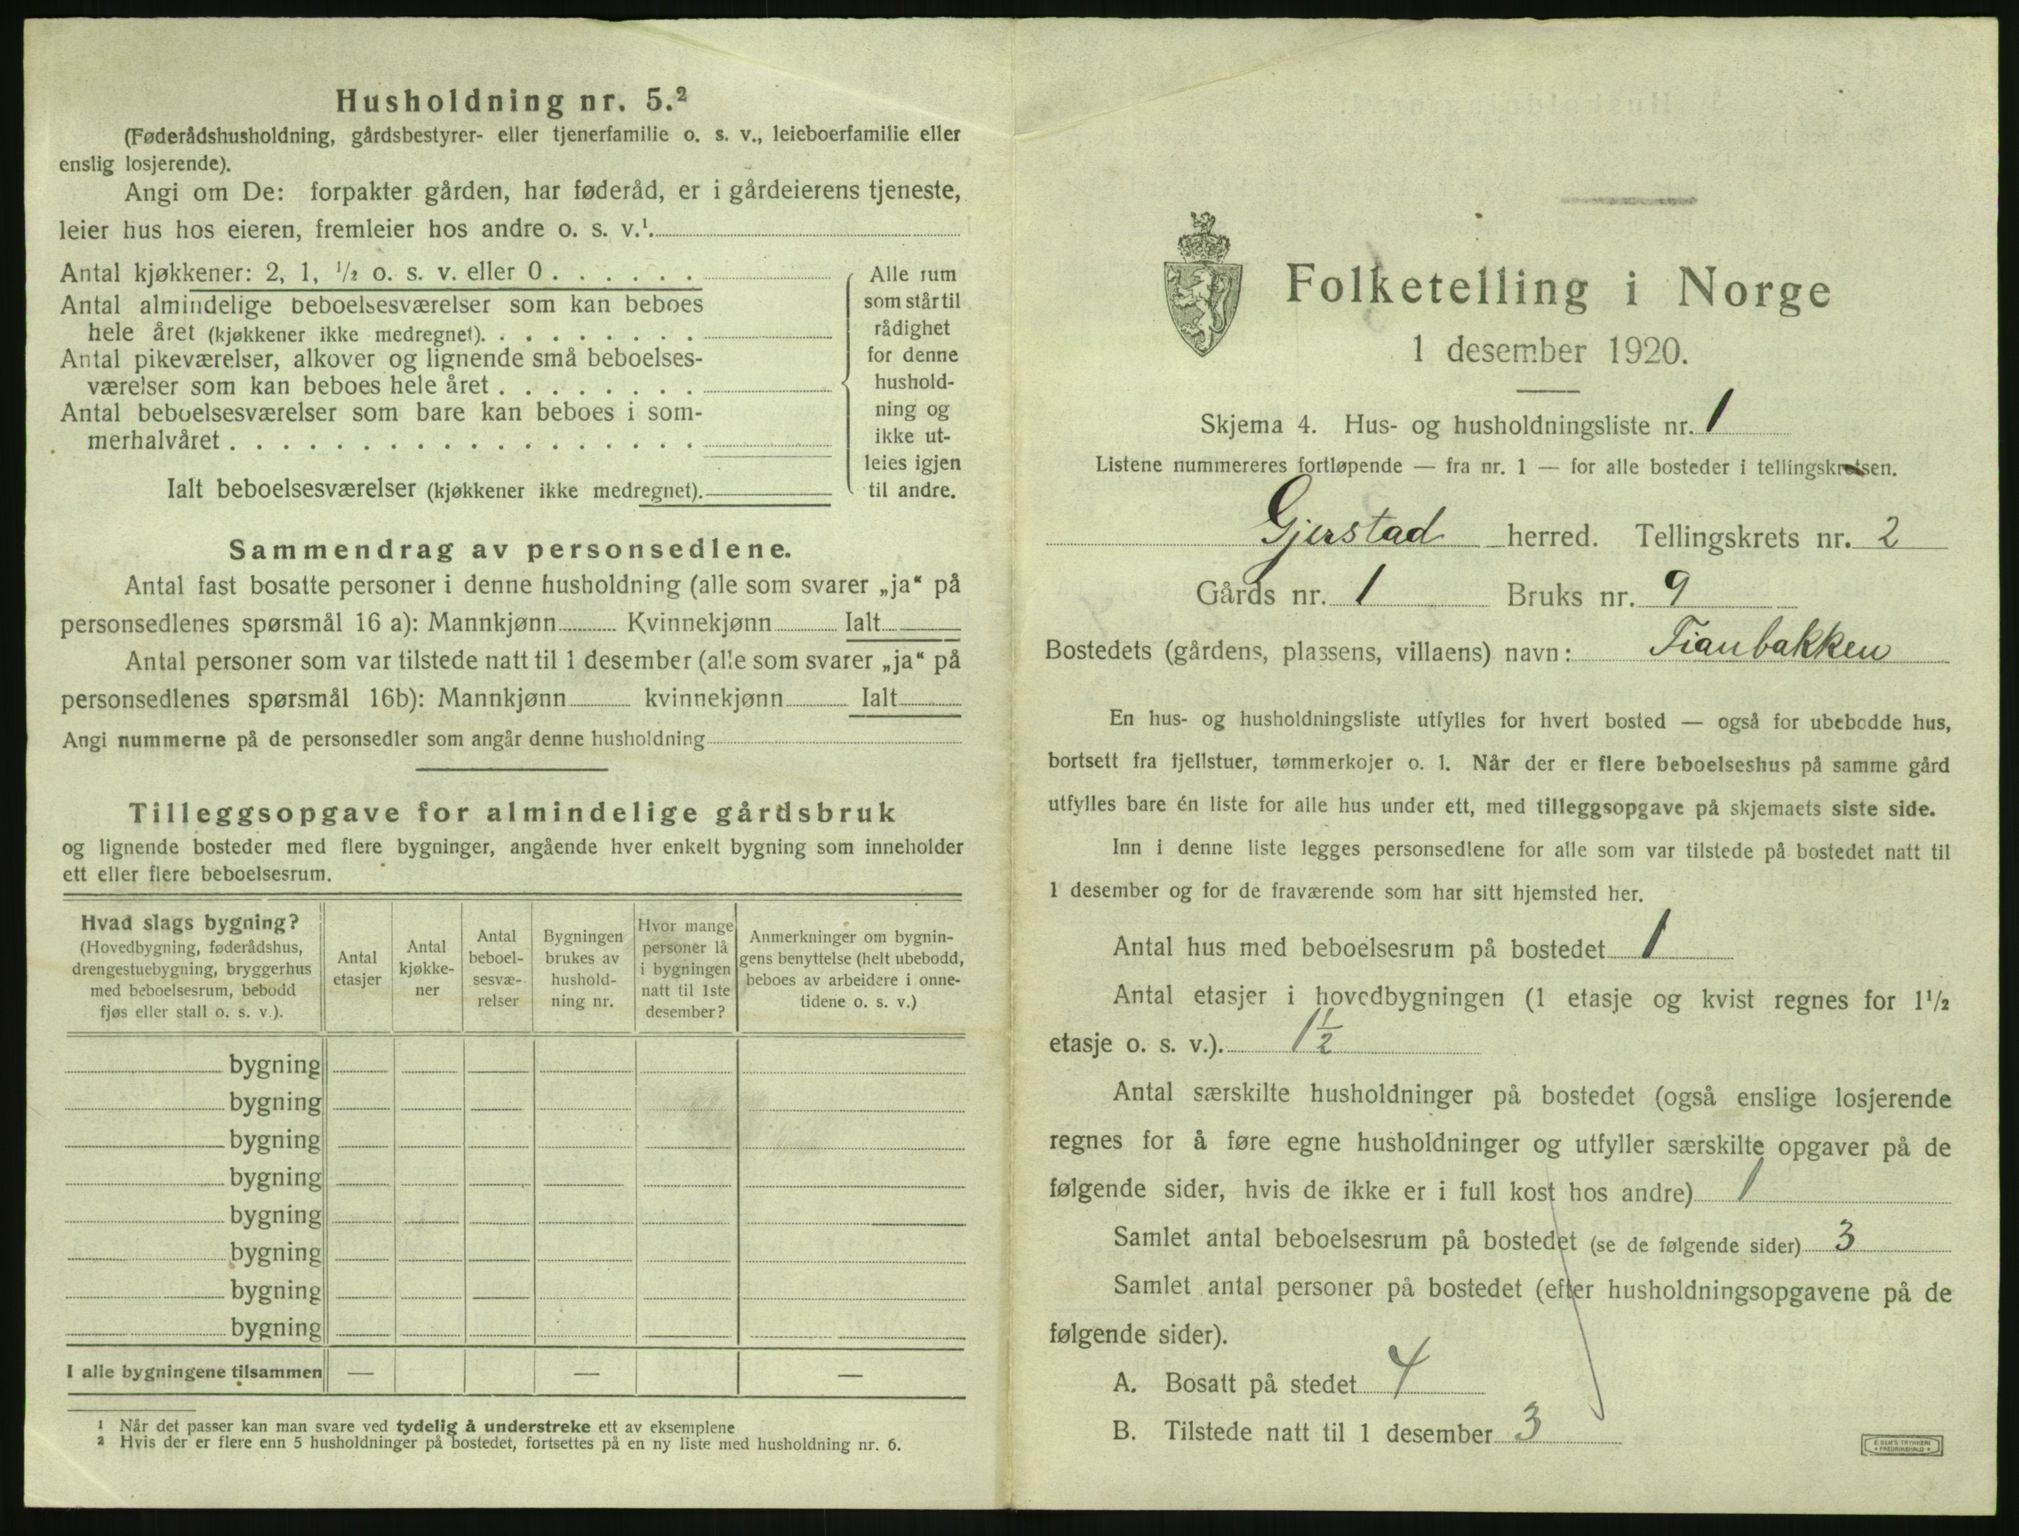 Husholdning nr. 5.²
(Føderådshusholdning, gårdsbestyrer- eller tjenerfamilie o. s. v., leieboerfamilie eller
enslig losjerende).
Angi om De: forpakter gården, har føderåd, er i gårdeierens tjeneste,
leier hus hos eieren, fremleier hos andre o. s. v.¹.
Antal kjøkkener: 2, 1, ¹/₂ o. s. v. eller 0 . . . . . .
Antal almindelige beboelsesværelser som kan beboes
hele året (kjøkkener ikke medregnet). . . . . . . . .
Antal pikeværelser, alkover og lignende små beboelses-
værelser som kan beboes hele året . . . . . . . .
Antal beboelsesværelser som bare kan beboes i som-
merhalvåret . . . . . . . . . . . . . . . . . .
Ialt beboelsesværelser (kjøkkener ikke medregnet).
Alle rum
som står til
rådighet
for denne
hushold-
ning og
ikke ut-
leies igjen
til andre.
Sammendrag av personsedlene.
Antal fast bosatte personer i denne husholdning (alle som svarer „ja“ på
personsedlenes spørsmål 16 a): Mannkjønn Kvinnekjønn Ialt
Antal personer som var tilstede natt til 1 desember (alle som svarer „ja“ på
personsedlenes spørsmål 16b): Mannkjønn kvinnekjønn Ialt
Angi nummerne på de personsedler som angår denne husholdning
Tilleggsopgave for almindelige gårdsbruk
og lignende bosteder med flere bygninger, angående hver enkelt bygning som inneholder
ett eller flere beboelsesrum.
Hvad slags bygning?
(Hovedbygning, føderådshus,
drengestuebygning, bryggerhus
med beboelsesrum, bebodd
fjøs eller stall o. s. v.).
Antal
etasjer
Antal
kjøkke-
ner
Antal
beboel-
sesvæ-
relser
Bygningen
brukes av
hushold-
ning nr.
Hvor mange
personer lå
i bygningen
natt til 1ste
desember?
Anmerkninger om bygnin-
gens benyttelse (helt ubebodd,
beboes av arbeidere i onne-
tidene o. s. v.)
bygning
bygning
bygning
bygning
bygning
bygning
bygning
bygning
I alle bygningene tilsammen — — —
¹ Når det passer kan man svare ved tydelig å understreke ett av eksemplene
² Hvis der er flere enn 5 husholdninger på bostedet, fortsettes på en ny liste med husholdning nr. 6.
Folketelling i Norge
1 desember 1920.
Skjema 4. Hus- og husholdningsliste nr. 1
Listene nummereres fortløpende — fra nr. 1 — for alle bosteder i tellingskretsen.
Gjerstad herred. Tellingskrets nr. 2
Gårds nr. 1 Bruks nr. 9
Bostedets (gårdens, plassens, villaens) navn: Tianbakken
En hus- og husholdningsliste utfylles for hvert bosted — også for ubebodde hus,
bortsett fra fjellstuer, tømmerkojer o. l. Når der er flere beboelseshus på samme gård
utfylles bare én liste for alle hus under ett, med tilleggsopgave på skjemaets siste side.
Inn i denne liste legges personsedlene for alle som var tilstede på bostedet natt til
1 desember og for de fraværende som har sitt hjemsted her.
Antal hus med beboelsesrum på bostedet 1
Antal etasjer i hovedbygningen (1 etasje og kvist regnes for 1¹/₂
etasje o. s. v.). 1½
Antal særskilte husholdninger på bostedet (også enslige losjerende
regnes for å føre egne husholdninger og utfyller særskilte opgaver på de
følgende sider, hvis de ikke er i full kost hos andre) 1
Samlet antal beboelsesrum på bostedet (se de følgende sider) 3
Samlet antal personer på bostedet (efter husholdningsopgavene på de
følgende sider).
A. Bosatt på stedet 4
B. Tilstede natt til 1 desember 3